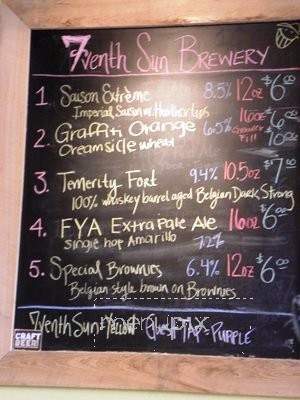 7venth Sun Brewery
1. Saison Extrème 8.5% 12oz $6.00
Imperial Saison w/ Heather tips
2. Graffiti Orange 6.5% 16oz $6.00
Creamsicle wheat Growler Fill
3. Temerity Fort 9.4% 10.5oz $7.00
100% whiskey barrel aged Belgian Dark Strong
4. FYA Extra Pale Ale 16oz $6.00
single hop Amarillo 7.2%
5. Special Brownies 6.4% 12oz $6.00
Belgian style brown on Brownies
7venth Sun = Yellow Guest TAP = PURPLE
menupix
CRAFT
BEER